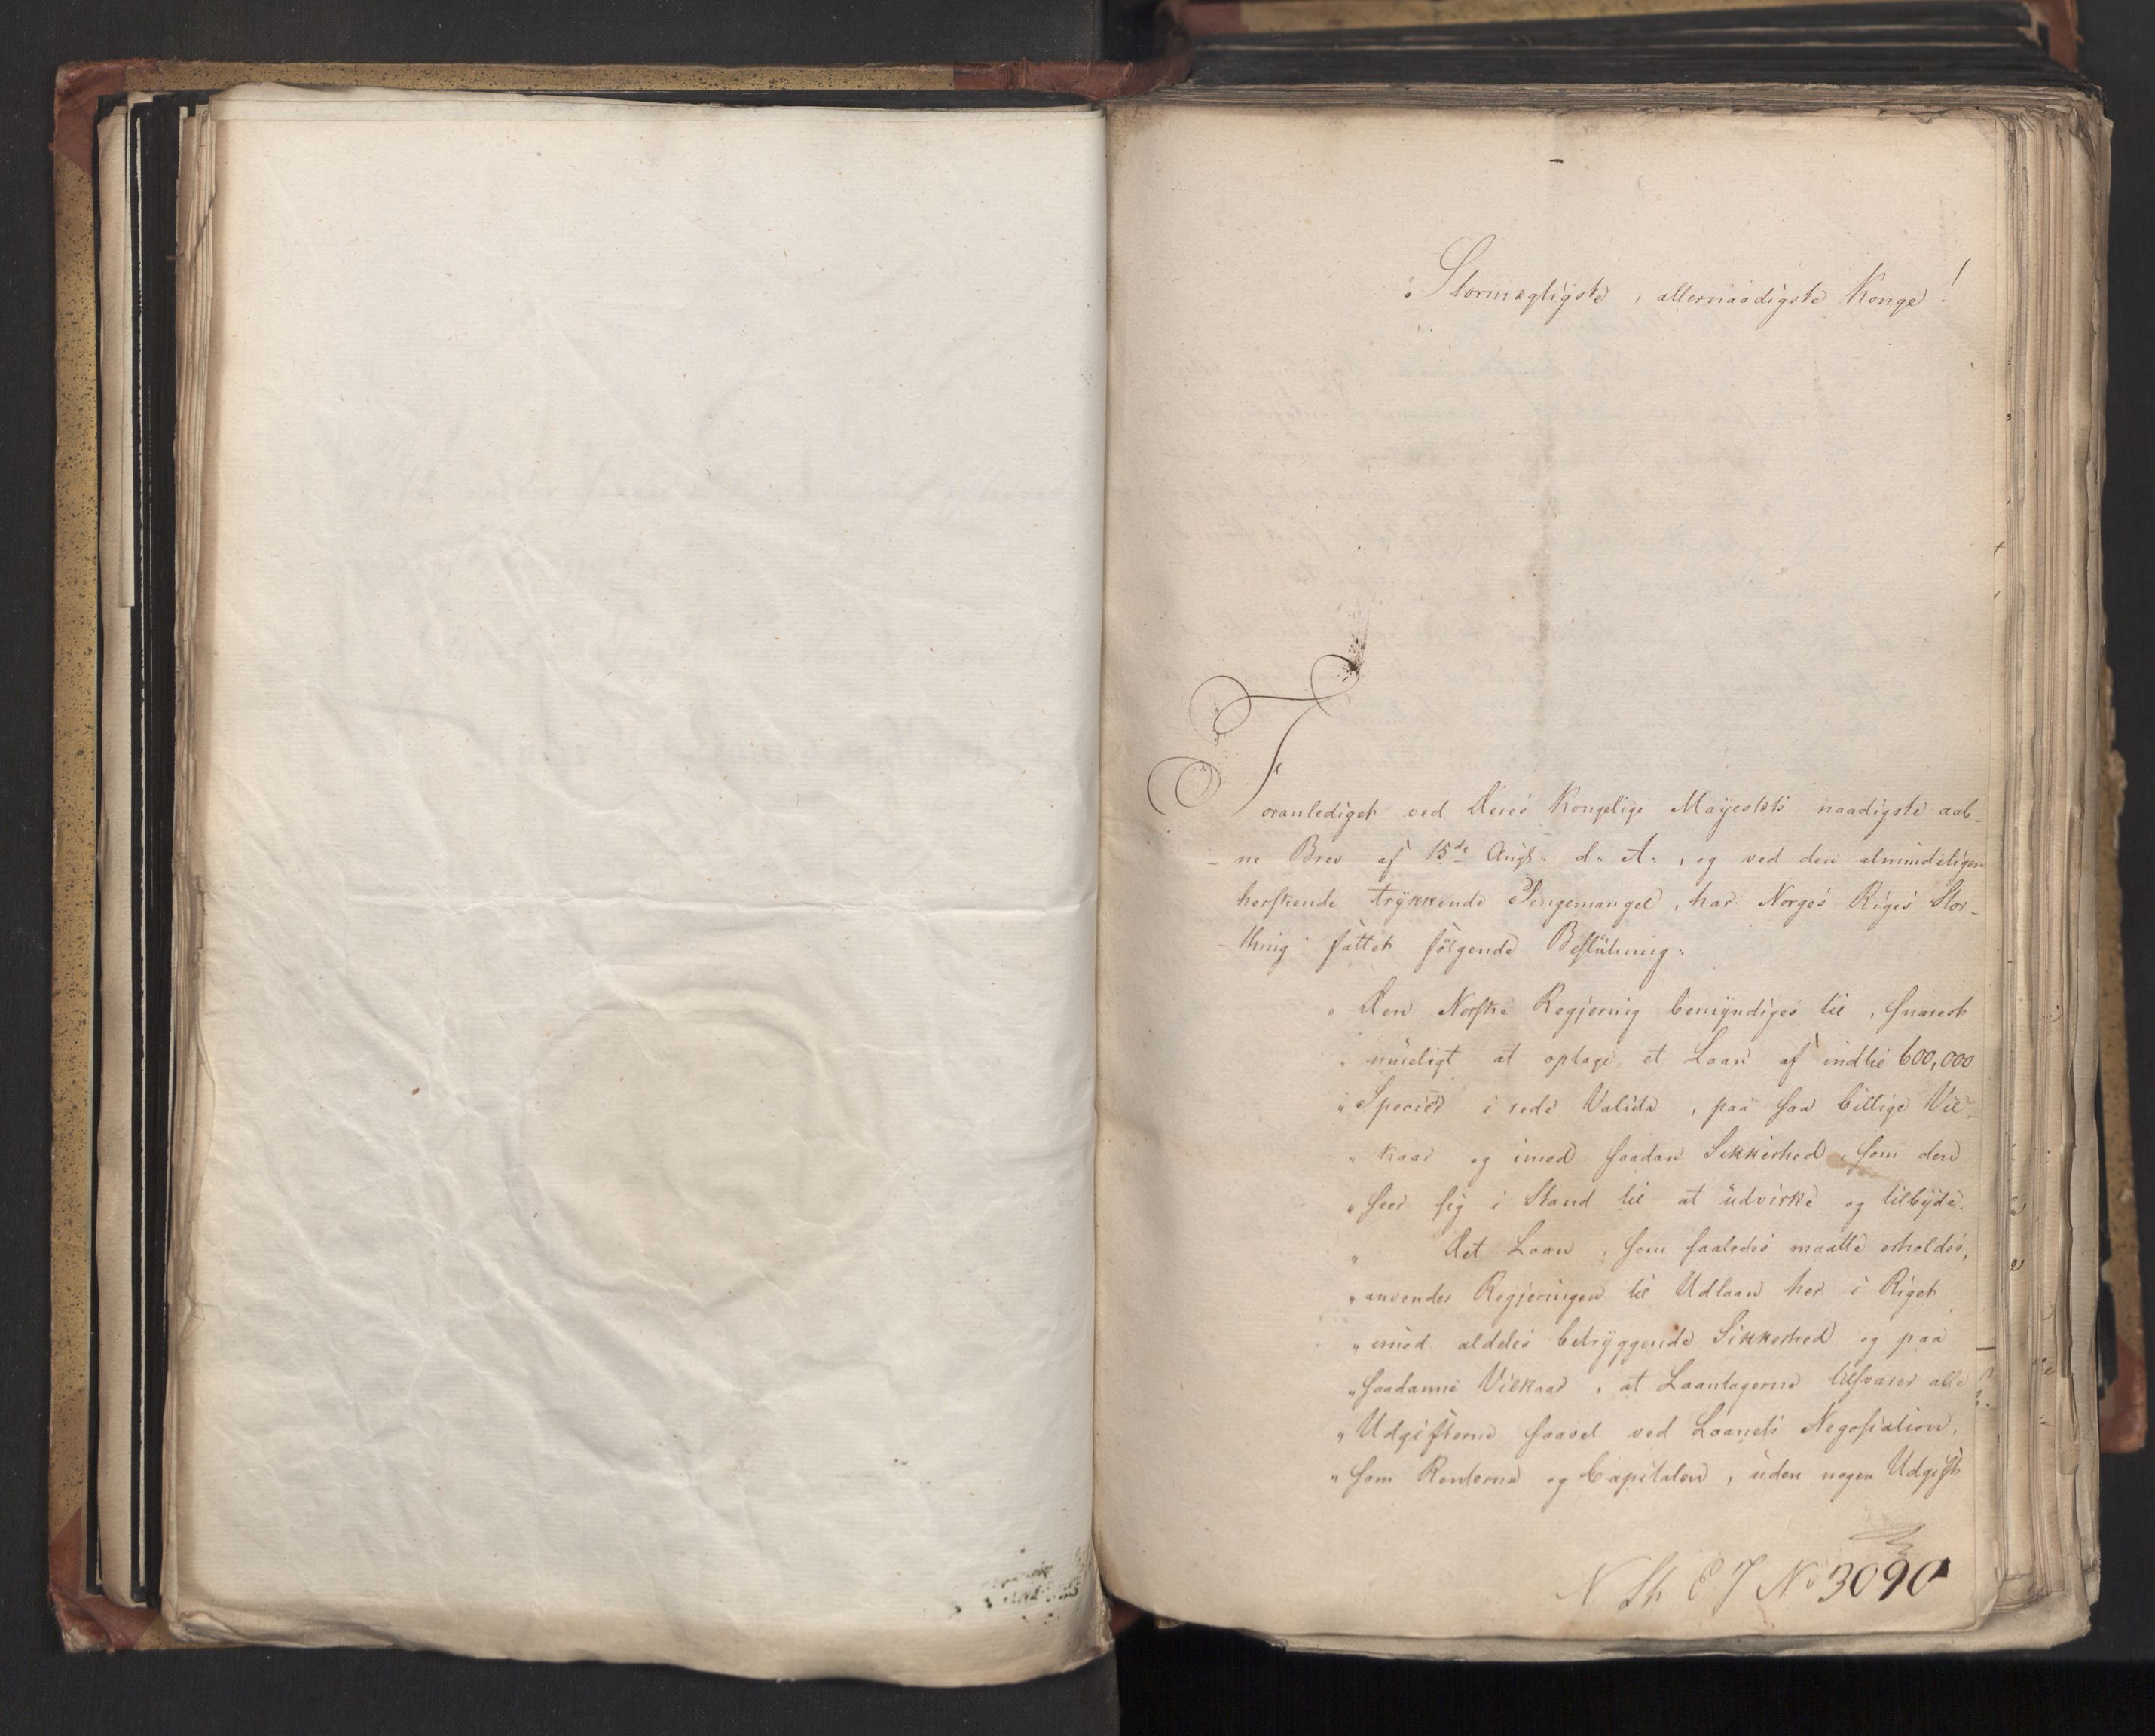 Stormægtigste, allernaadigste Konge!
Foranlediget ved Deres Kongelige Mayestets naadigste aab-
-ne Brev af 15de Augs: d: A:, og ved den almindeligen
herskende trykkende Pengemangel, har Norges Riges Stor-
-thing fattet følgende Beslutning:
" Den Norske Regjernig bemyndiges til, snarest
" mueligt at optage et Laan af indtil 600,000
" Species i rede Valuta, paa saa billige Vil-
" kaar og imod saadan Sikkerhed, som den
" seer sig i Stand til at udvirke og tilbyde.
" Det Laan, som saaledes maatte erholdes,
" anvender Regjeringen til Udlaan her i Riget
" imod aldeles betryggende Sikkerhed og paa
" saadanne Vilkaar, at Laantagerne tilsvarer alle
" Udgifterne saavel ved Laanets Negosiation,
" som Renterne og Capitalen, uden nogen Udgift
N Sth E J No 3090